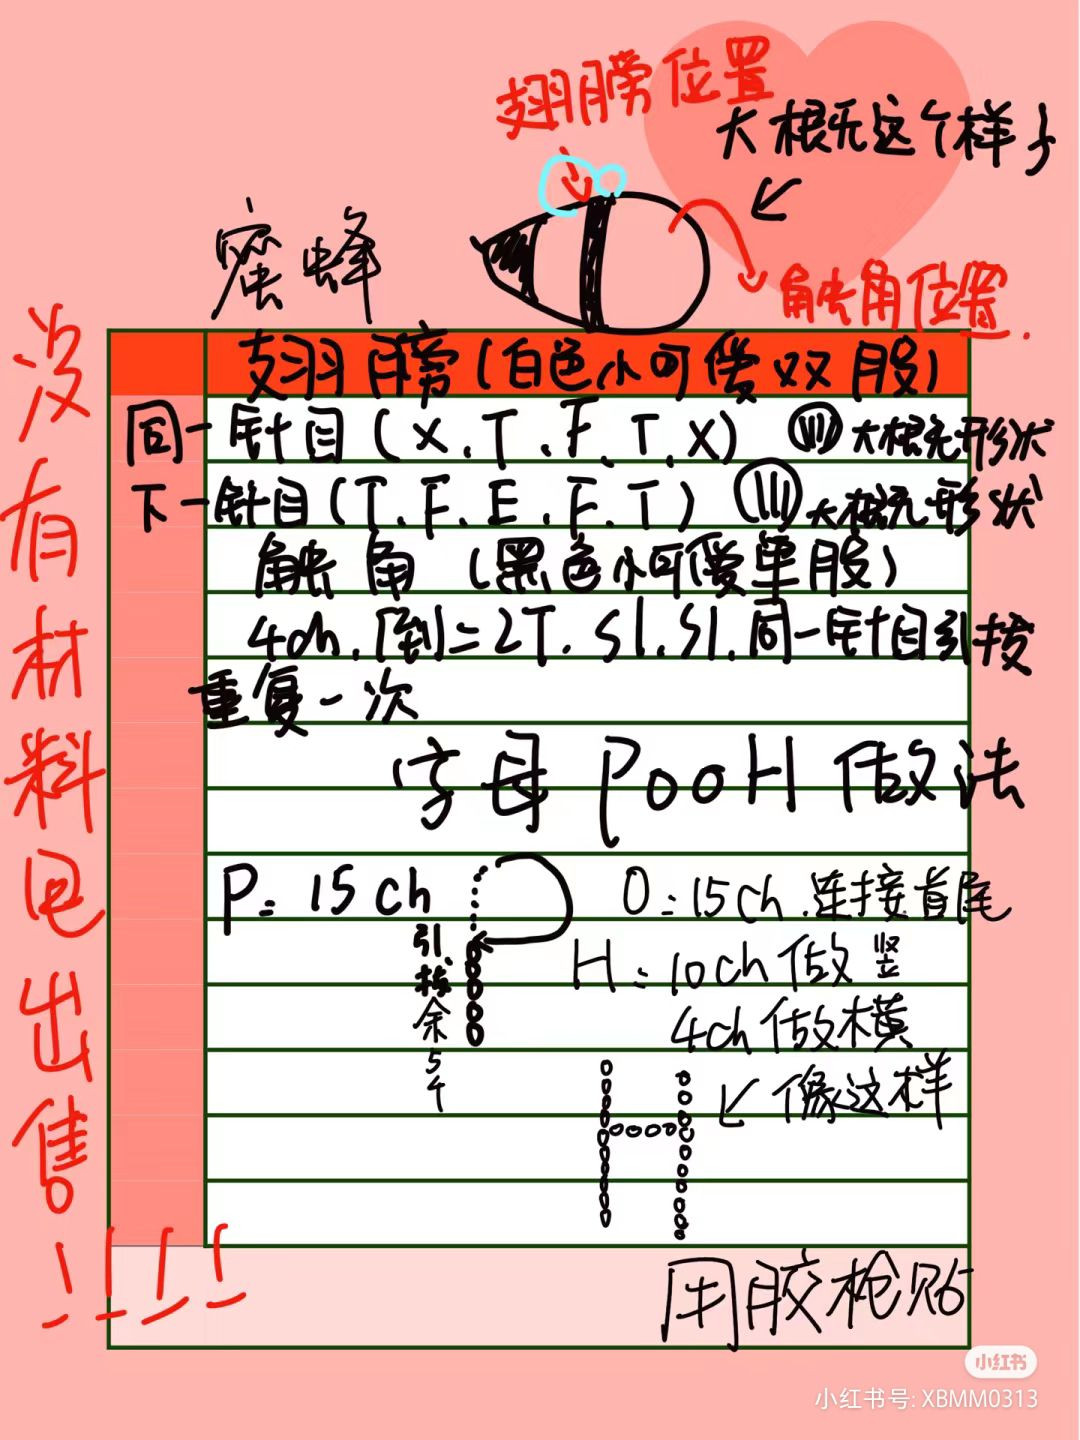 翅膀位置
大概是这个样子
蜜蜂
触角位置.
没有材料包出售!!!!
翅膀(白色小可爱双股)
同一针目(X.T.F.T.X) 大概是形状
下一针目(T.F.E.F.T) 大概是形状
触角(黑色小可爱单股)
4ch.倒二2T.sl.sl.同一针目引拔
重复一次
字母PooH做法
P=15ch
引拔余5个
O=15ch.连接首尾
H=10ch做竖
4ch做横
像这样
用胶枪贴
小红书
小红书号: XBMM0313